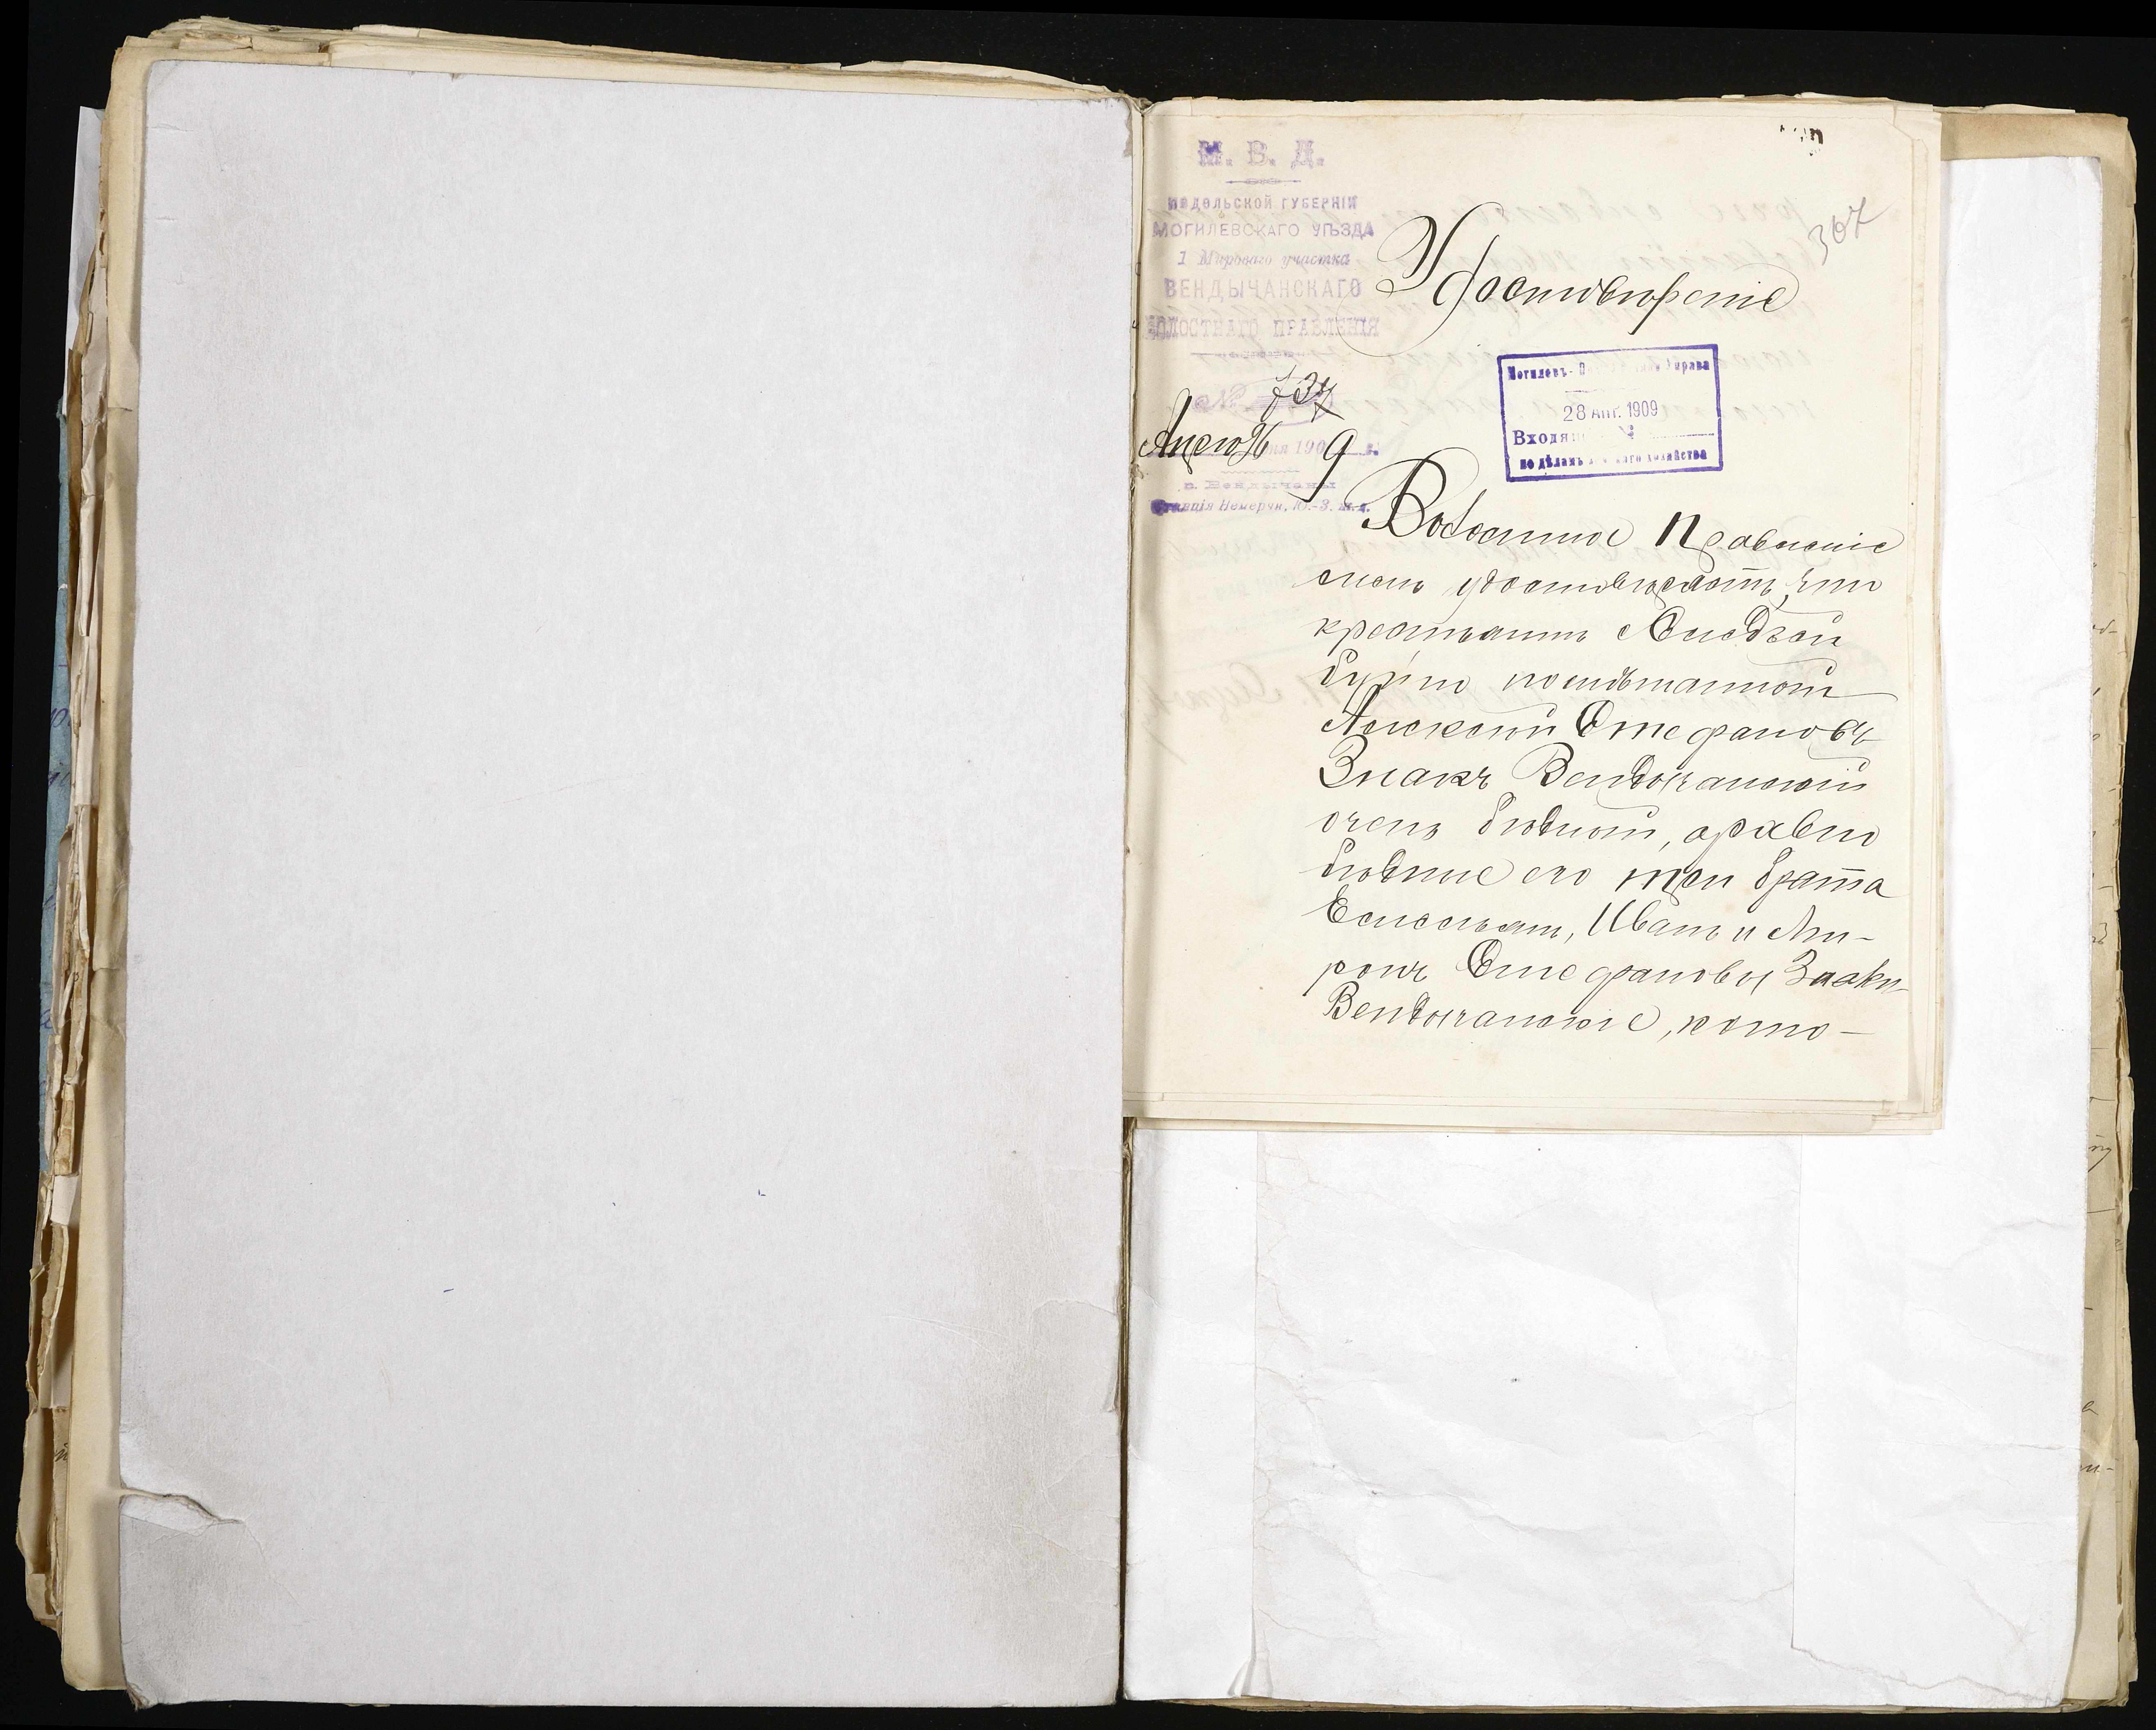 М. В. Д.
ПОДОЛЬСКОЙ ГУБЕРНІИ
МОГИЛЕВСКАГО УѢЗДА
1 Мирового участка
ВЕНДЫЧАНСКАГО
ВОЛОСТНАГО ПРАВЛЕНІЯ
№ 734
Апрѣля 26 дня 1909 г.
с. Вендычаны
Станція Немерчи, Ю.-З. ж.д.
367
Удостовѣреніе
Могилевъ- Управа
28 АПР. 1909
Входящ №
по дѣламъ хозяйства
Волостное Правленіе
симъ удостовѣряетъ, что
крестьянинъ
буйно помѣшанный
Алексѣй Стефановъ
Знакъ Вендычанскій
очень бѣдный, а равно
бѣдные его три брата
Емельянъ, Иванъ и Ми-
ронъ Стефановы Знаки-
Вендычанскіе, кото-